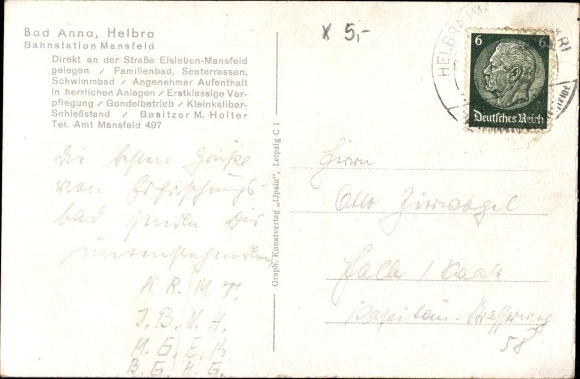 Bad Anna, Helbra
Bahnstation Mansfeld
Direkt an der Straße Eisleben-Mansfeld
gelegen / Familienbad, Seeterrassen,
Schwimmbad / Angenehmer Aufenthalt
in herrlichen Anlagen / Erstklassige Ver-
pflegung / Gondelbetrieb / Kleinkaliber-
Schießstand / Besitzer M. Holter
Tel. Amt Mansfeld 497
Die besten Grüße
vom Erfrischungs-
bad senden Dir
K. R. M. T.
J. B. W. H.
M. G. E. K.
B. G. H. G.
Graph. Kunstverlag „Lipsia", Leipzig C 1
x 5,-
HELBRA
6 6
Deutsches Reich
Herrn
Otto Ziervogel
Halle / Saale
Kapitän-
58